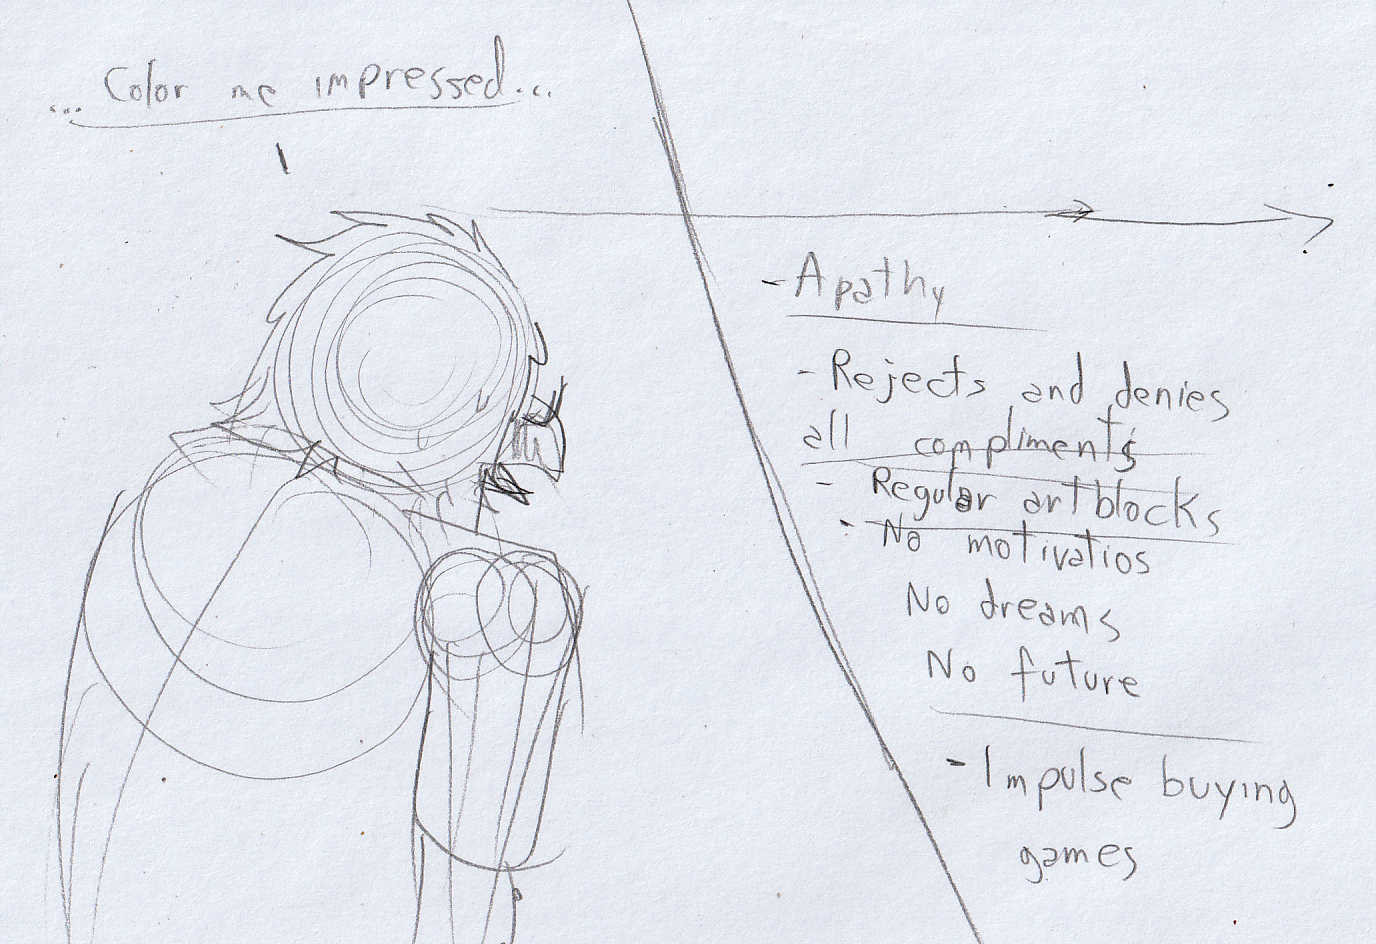 ... Color me impressed...
- Apathy
- Rejects and denies
all compliments
- Regular artblocks
- No motivatios
No dreams
No future
- Impulse buying
games